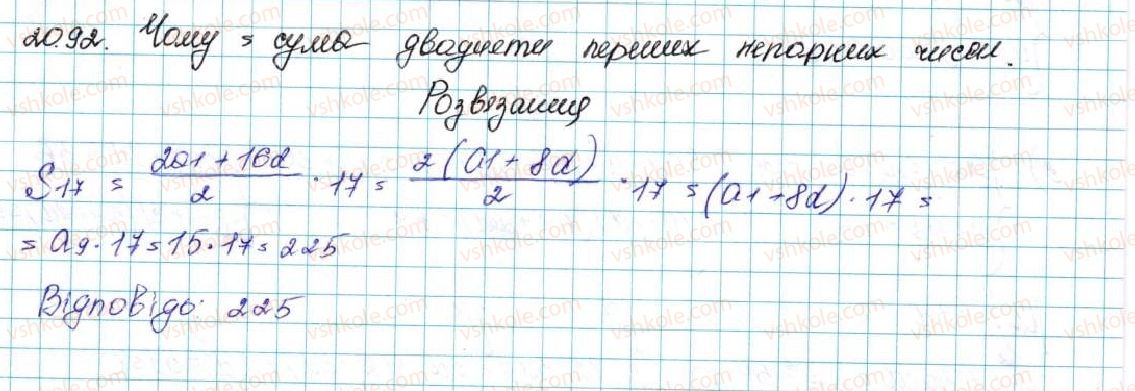 20.92. Чому = сума двадцети перших непарних чисел.
Розвязання
S17 = 2a1 + 16d / 2 · 17 = 2 (a1 + 8d) / 2 · 17 = (a1 + 8d) · 17 =
= a9 · 17 = 15 · 17 = 225
Відповідь: 225